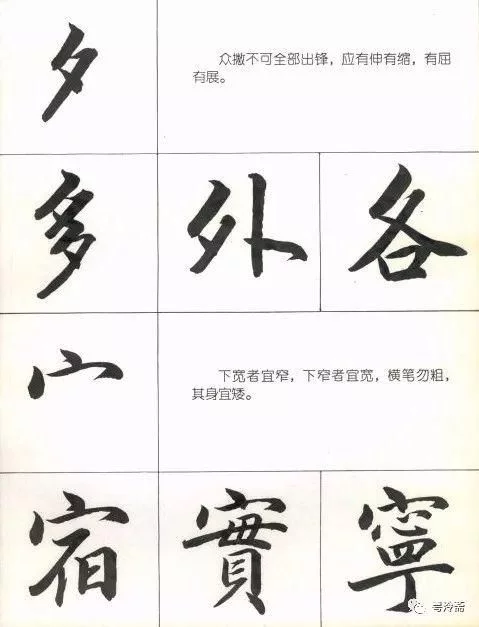 夕
众撇不可全部出锋，应有伸有缩，有屈
有展。
多 外 各
宀
下宽者宜窄，下窄者宜宽，横笔勿粗，
其身宜矮。
宿 實 寧
芎冷斋